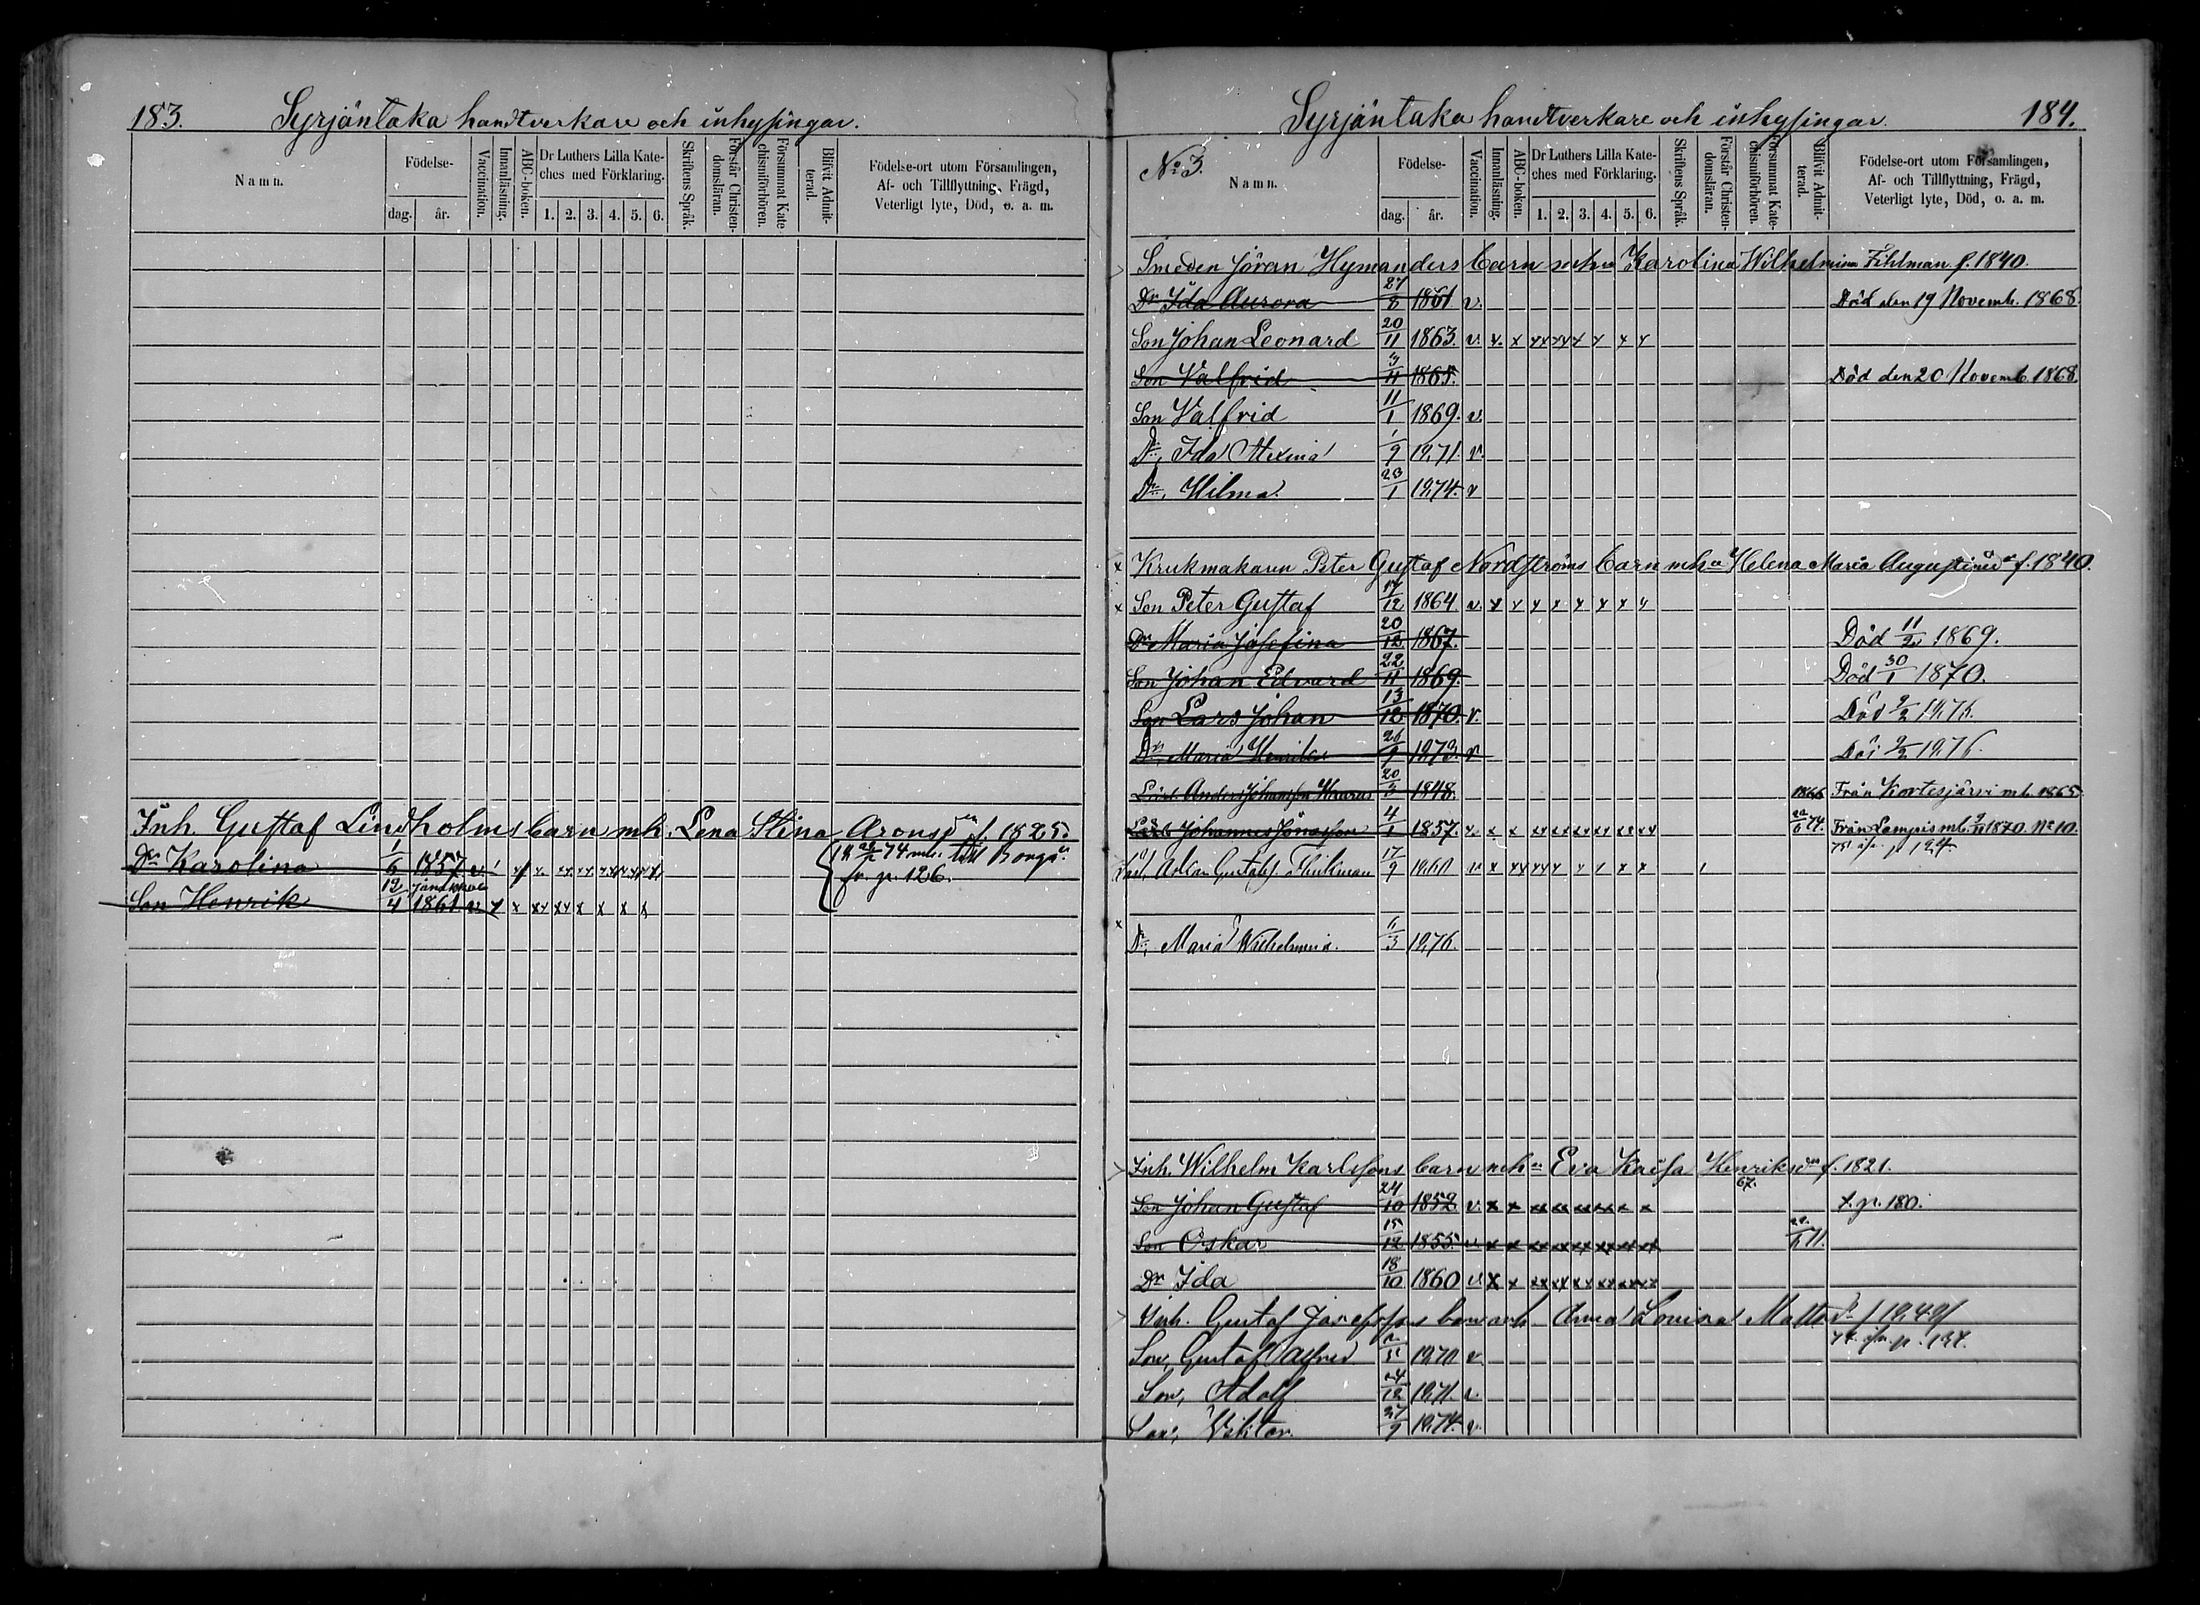 183. Syrjäntaka handtverkare och inhysingar.
Namn. Födelse- dag. år. Vaccination. Innanläsning. ABC-boken. Dr Luthers Lilla Kateches med Förklaring. 1. 2. 3. 4. 5. 6. Skriftens Språk. Förstår Christendomsläran. Försummat Katechismiförhören. Blifvit Admitterad. Födelse-ort utom Församlingen, Af- och Tillflyttning, Frägd, Veterligt lyte, Död, o. a. m.
Inh. Gustaf Lindholms barn mh. Lena Stina Aronsdr f. 1825.
Dr Karolina 1/6 1857 v. 74 till Borgå
fr. p. 126.
Son Henrik 12/4 1861 v. x x xx xx x x x x
Syrjäntaka handtverkare och inhysingar. 184.
No 3. Namn. Födelse- dag. år. Vaccination. Innanläsning. ABC-boken. Dr Luthers Lilla Kateches med Förklaring. 1. 2. 3. 4. 5. 6. Skriftens Språk. Förstår Christendomsläran. Försummat Katechismiförhören. Blifvit Admitterad. Födelse-ort utom Församlingen, Af- och Tillflyttning, Frägd, Veterligt lyte, Död, o. a. m.
Smeden Jöran Hymanders barn Karolina Wilhelmina Fihlman f. 1840.
Dr Ida Aurora 27/8 1861 v. Död den 19 Novemb. 1868.
Son Johan Leonard 20/11 1863. v. x. x xx xx x x x x
Son Valfrid 3/11 1865. Död den 20 Novemb. 1868.
Son Valfrid 11/1 1869. v.
Dr, Ida 1/9 1871. v.
Dr, Wilma. 23/1 1874. v
Krukmakaren Peter Gustaf Nordströms barn mh Helena Maria f. 1840.
Son Peter Gustaf 17/12 1864 v. x x x x x x x x
Dr Maria Josefina 20/12 1867. Död 11/2 1869.
Son Johan Edvard 22/11 1869. Död 30/1 1870.
Son Lars Johan 13/12 1870. v. Död 9/2 1876.
Dr, Maria Henrika 26/9 1873. v Död 9/2 1876.
Lärl. Anders Johansson 20/3 1848. 1866 Från Kortesjärvi mb. 1865
Lärl. Johannes Jönasson 4/1 1857. v. x x xx xx xx xx xx xx 74. Från Lampis mb. 1870. No 10.
Gustafs 17/9 1860 v x xx xx x x x x x
Dr, Maria Wilhelmina. 6/3 1876.
Inh. Wilhelm Karlssons barn mh Eva Kaisa Henriksdr f. 1821.
Son Johan Gustaf 24/10 1852 v. x x xx xx xx xx x x 67. t. p. 180.
Son Oskar 15/12 1855. v. x x xx xx xx xx xx xx 71.
Dr Ida 18/10 1860 v. x x xx xx xx xx xx xx
Inh. Gustaf Josefssons barn mh Anna Lovisa Mattsdr f 1849
p. 137.
Son, Gustaf Valfrid 1870 v
Son, Adolf 24/12 1871. v.
Son, Viktor. 27/9 1874. v.